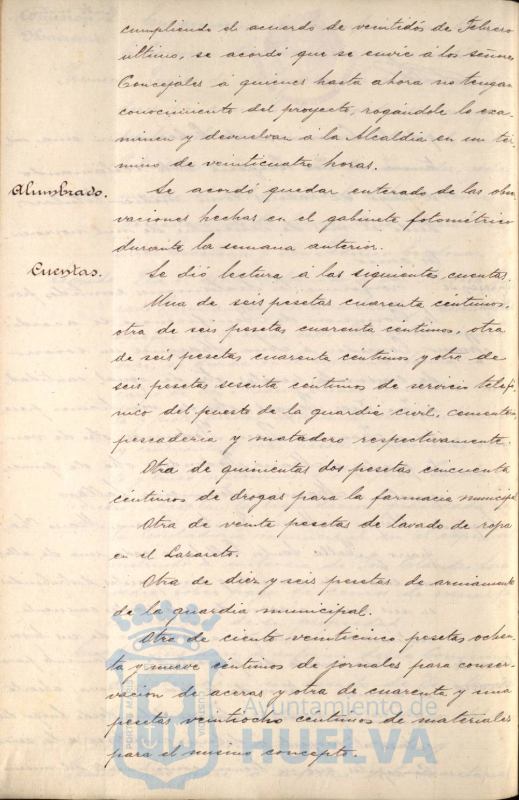 cumpliendo el acuerdo de veintidós de Febrero
último, se acordó que se envie á los señores
Concejales á quienes hasta ahora no tengan
conocimiento del proyecto, rogándole lo exa-
minen y devuelvan á la Alcaldía en un tér-
mino de veinticuatro horas.
Alumbrado. Se acordó quedar enterado de las obser
vaciones hechas en el gabinete fotométrico
durante la semana anterior.
Cuentas. Se dió lectura á las siguientes cuentas.
Una de seis pesetas cuarenta céntimos,
otra de seis pesetas cuarenta céntimos, otra
de seis pesetas cuarenta céntimos y otra de
seis pesetas sesenta céntimos de servicio telefó
nico del puesto de la guardia civil, cementerio,
pescadería y matadero respectivamente.
Otra de quinientas dos pesetas cincuenta
céntimos de drogas para la farmacia municipal
Otra de veinte pesetas de lavado de ropa
en el Lazareto.
Otra de diez y seis pesetas de armamento
de la guardia municipal.
Otra de ciento veinticinco pesetas ochen-
ta y nueve céntimos de jornales para conser-
vación de aceras y otra de cuarenta y una
pesetas veintiocho céntimos de materiales
para el mismo concepto.
Ayuntamiento de
HUELVA